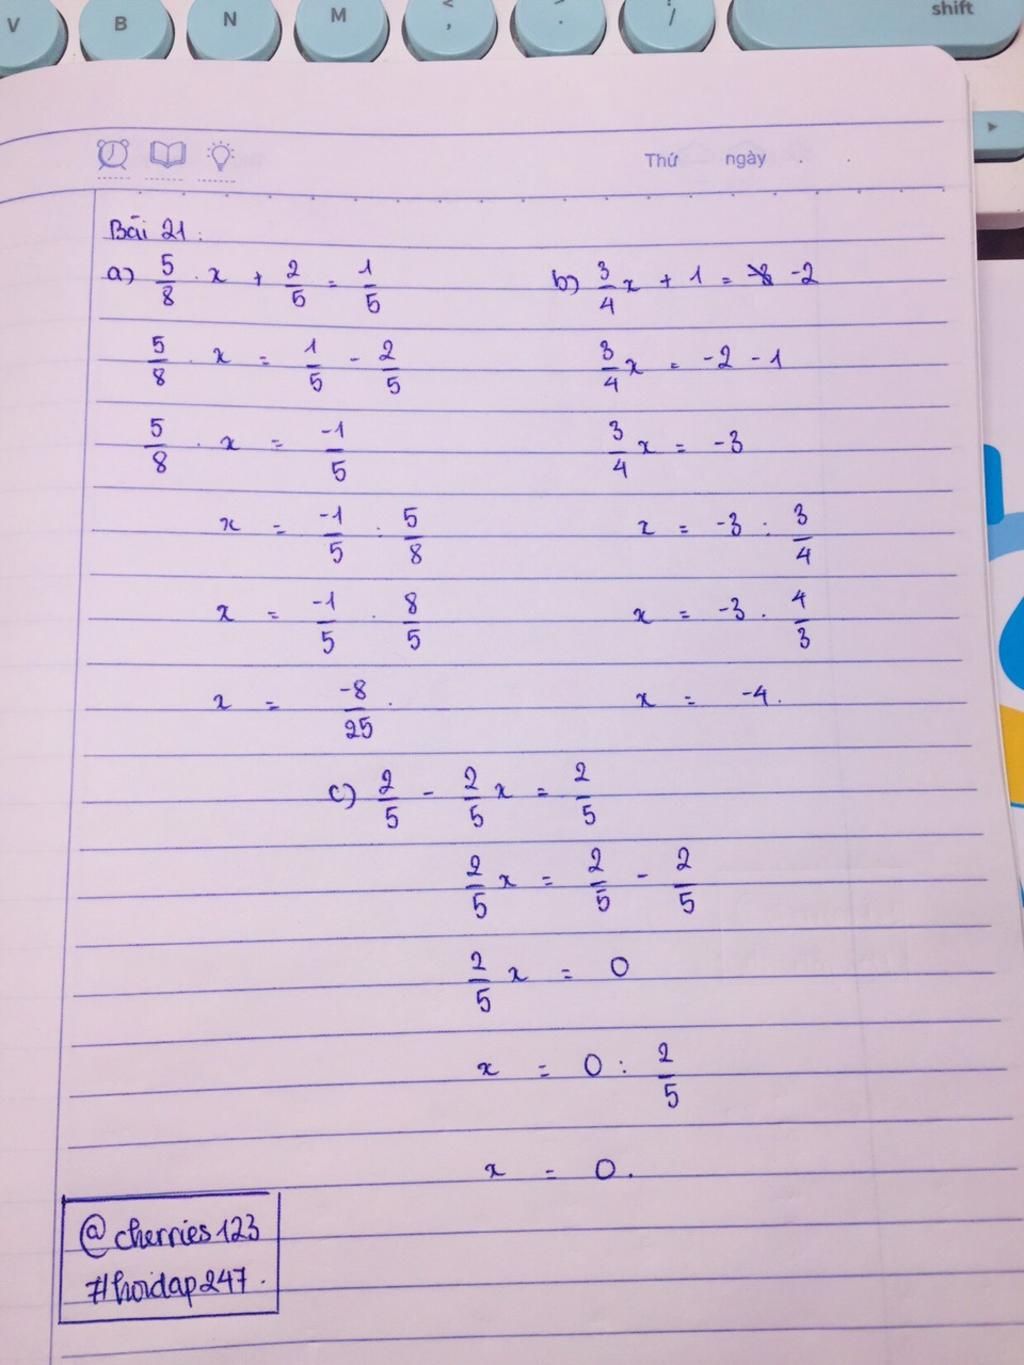 V B N M < , > . ! / shift
Thứ ngày
Bài 21:
a) 5/8 . x + 2/5 = 1/5
5/8 . x = 1/5 - 2/5
5/8 . x = -1/5
x = -1/5 : 5/8
x = -1/5 . 8/5
x = -8/25.
b) 3/4 x + 1 = -2
3/4 x = -2 - 1
3/4 x = -3
x = -3 : 3/4
x = -3 . 4/3
x = -4.
c) 2/5 - 2/5 x = 2/5
2/5 x = 2/5 - 2/5
2/5 x = 0
x = 0 : 2/5
x = 0.
@cherries123
#hoidap247.